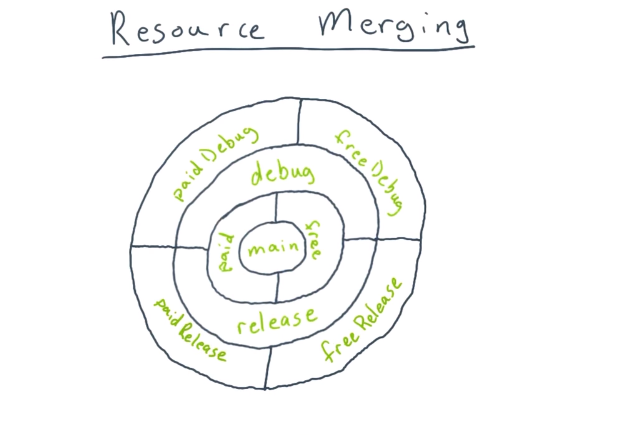 Resource Merging
paid Debug
free Debug
debug
paid
main
free
release
paid Release
free Release